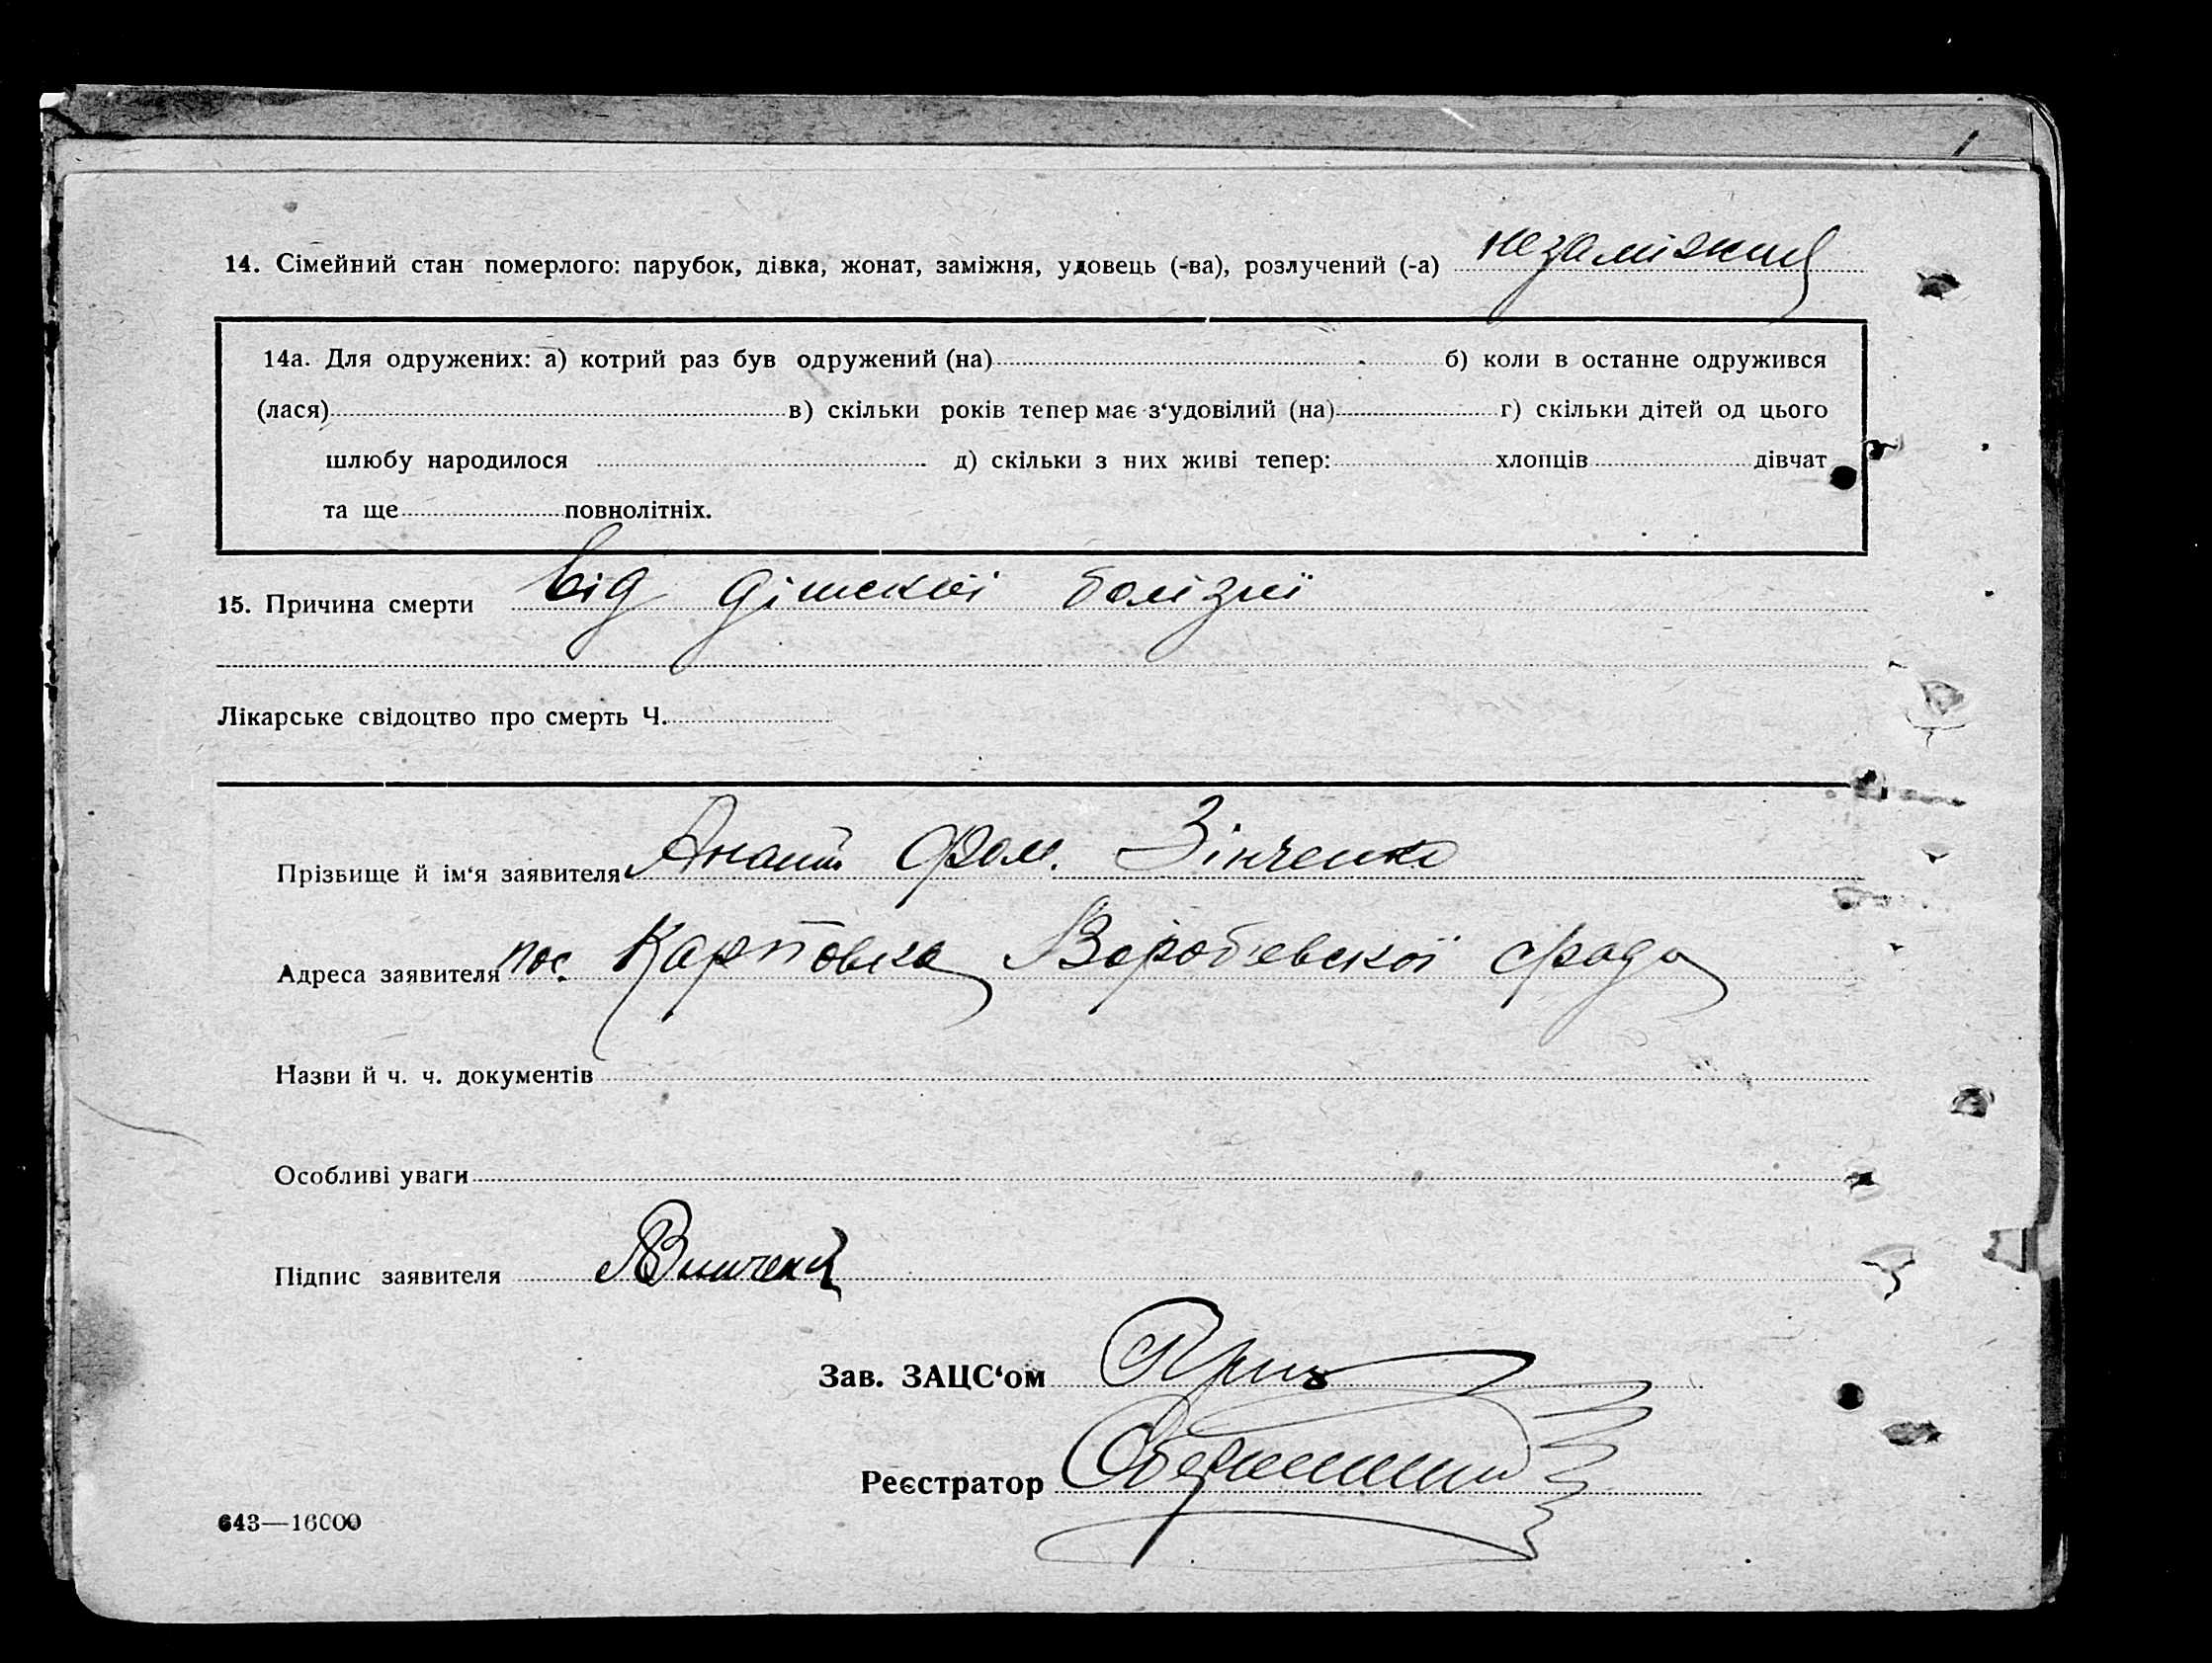 14. Сімейний стан померлого: парубок, дівка, жонат, заміжня, удовець (-ва), розлучений (-а) незаміжня
14а. Для одружених: а) котрий раз був одружений (на) б) коли в останне одружився
(лася) в) скільки років тепер має з‘удовілий (на) г) скільки дітей од цього
шлюбу народилося д) скільки з них живі тепер: хлопців дівчат
та ще повнолітніх.
15. Причина смерти від дітскої болізні
Лікарське свідоцтво про смерть Ч.
Прізвище й ім‘я заявителя Зінченко
Адреса заявителя пос. Карповка
Назви й ч. ч. документів
Особливі уваги
Підпис заявителя
Зав. ЗАЦС‘ом
Реєстратор
643—16000